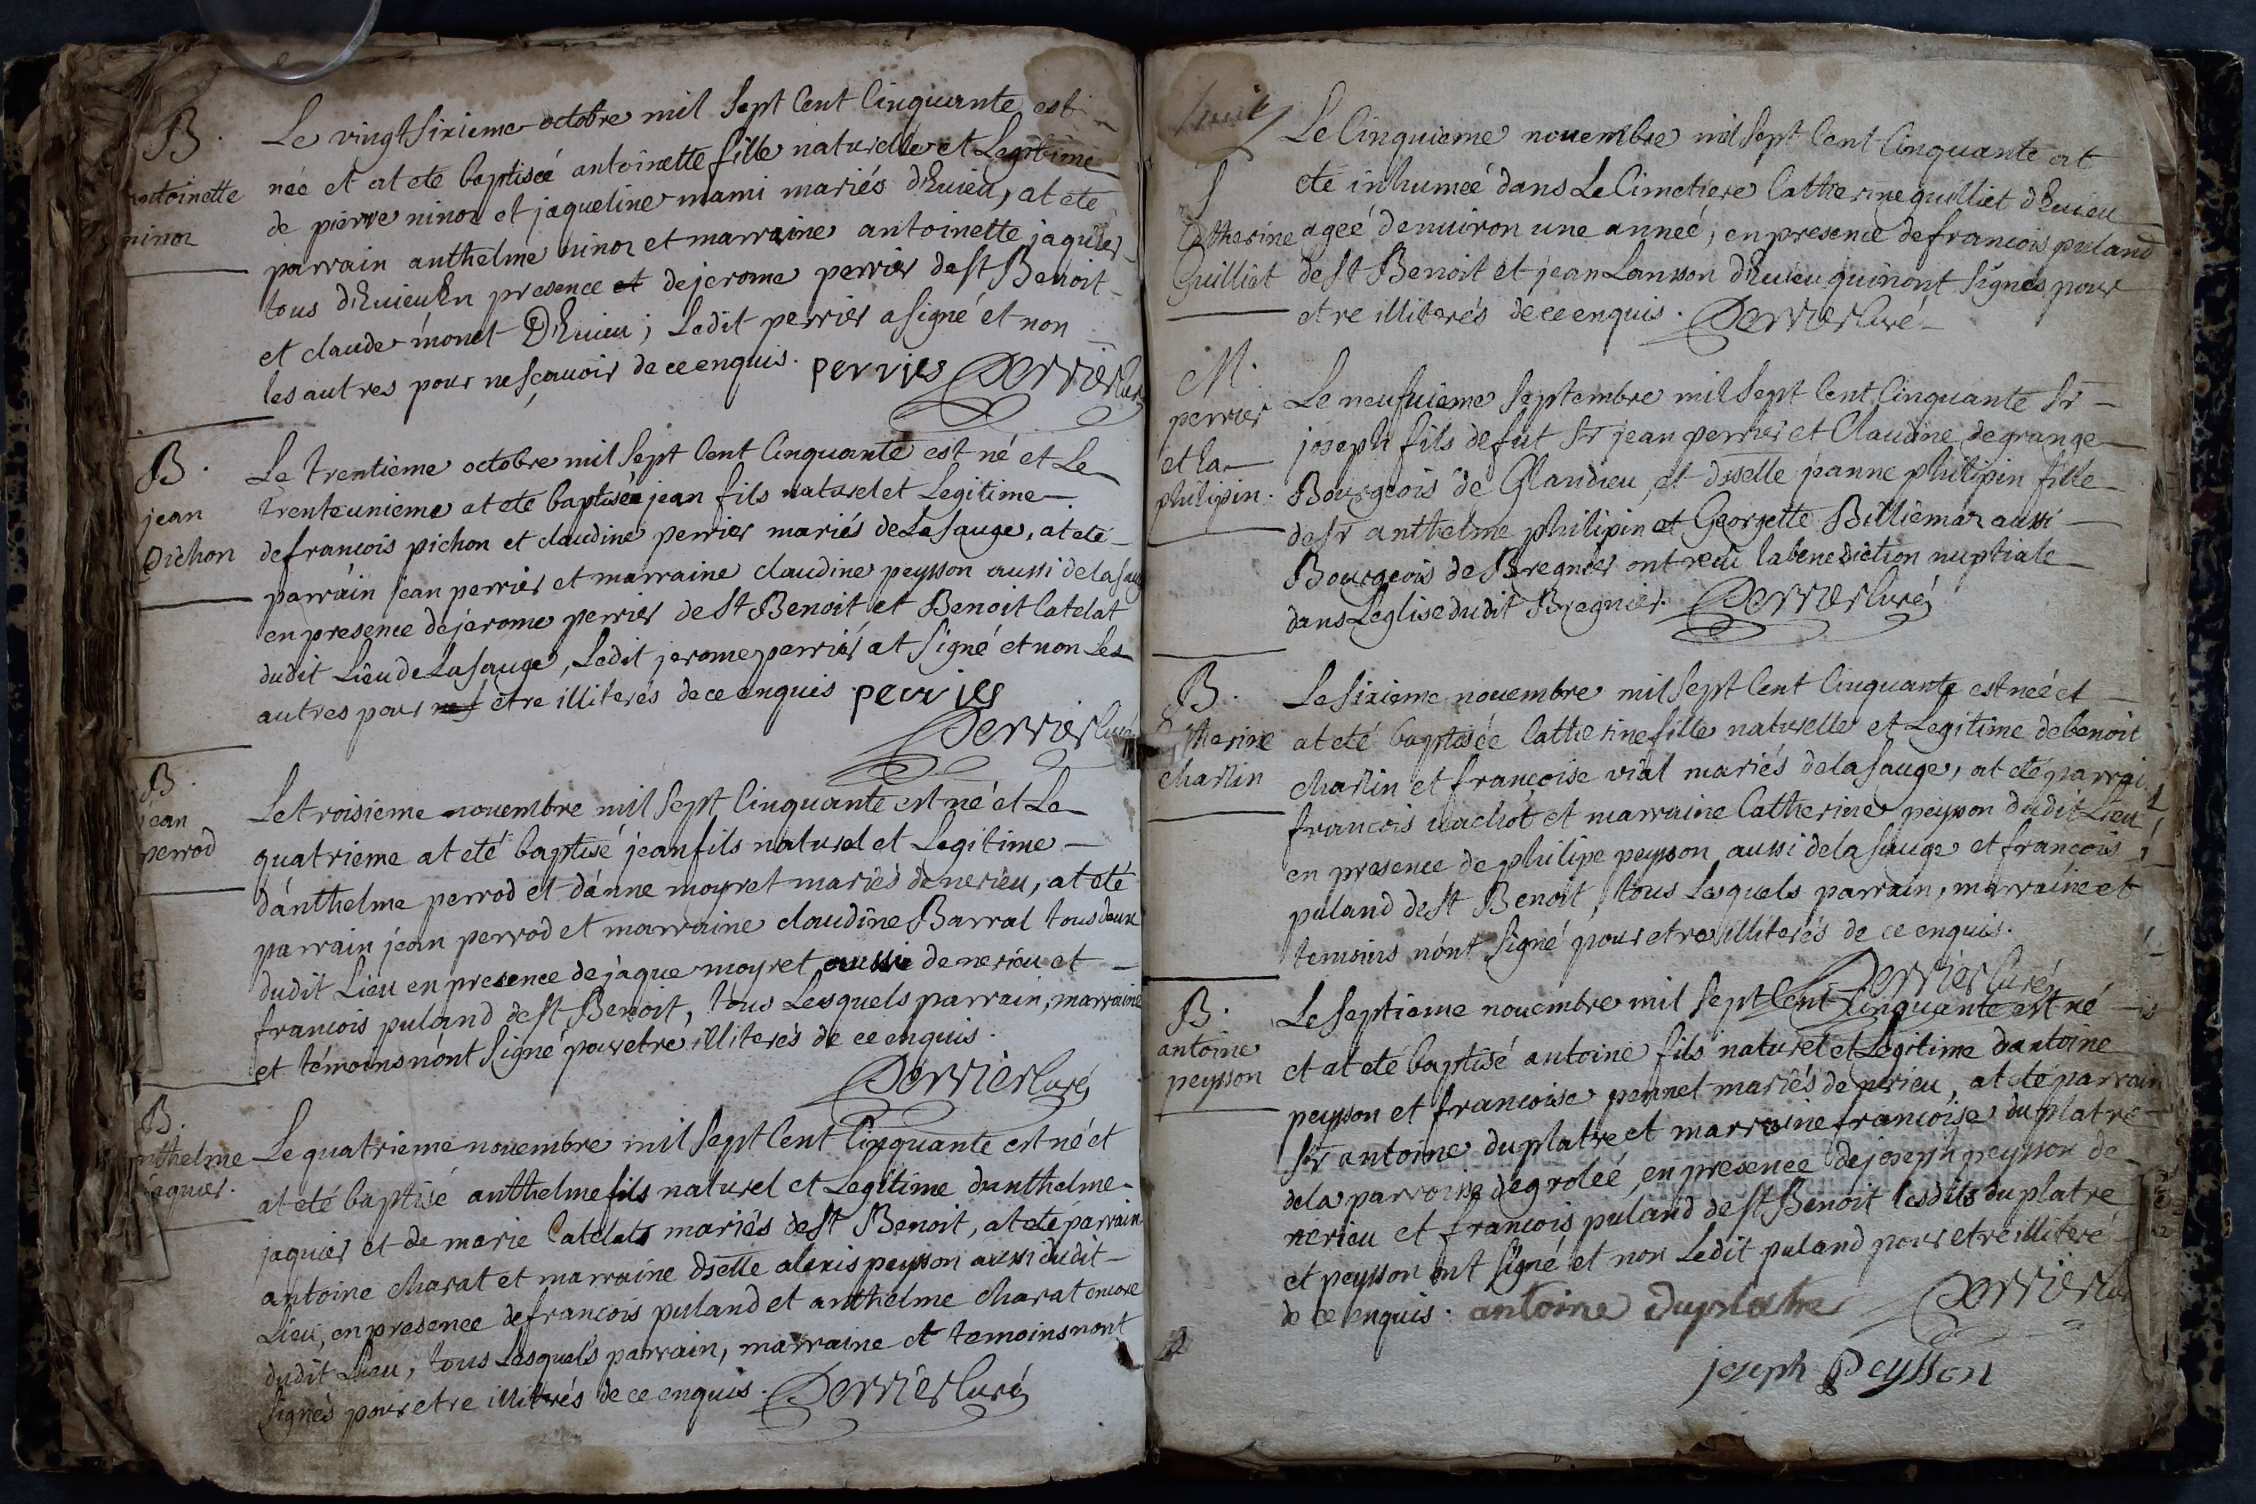 B.
antoinette
ninoz
Le vingtsixieme octobre mil sept Cent Cinquante est
née et at eté baptiseé antoinette fille naturelle et Legitime
de pierre ninoz et jaqueline mami mariés d'Evieu, at eté
parrain anthelme ninoz et marraine antoinette jaquier
tous d'Evieu En presence et de jerome perrier de st Benoit
et claude monet D'Evieu; Ledit perrier a signé et non
les autres pour ne sçavoir de ce enquis. perrier Perrier Curé
B.
jean
pichon
Le trentieme octobre mil sept Cent Cinquante est né et Le
trenteunieme at eté baptisée jean fils naturel et Legitime
de francois pichon et claudine perrier mariés de La sauge, at eté
parrain jean perrier et marraine claudine peysson aussi de la sauge
en presence de jerome perrier de st Benoit et Benoit Catelat
dudit Lieu de La sauge, Ledit jerome perrier at signé et non Les
autres pour etre illiterés de ce enquis perrier
Perrier Curé
B.
jean
perrod
Le troisieme novembre mil sept Cinquante est né et Le
quatrieme at eté baptisé jean fils naturel et Legitime
d'anthelme perrod et d'anne moyret mariés de nerieu, at eté
parrain jean perrod et marraine claudine Barral tous deux
dudit Lieu en presence de jaque moyret aussi de nerieu et
francois puland de st Benoit, tous Lesquels parrain, marraine
et témoins n'ont signé pour etre illiterés de ce enquis.
Perrier Curé
B.
anthelme
jaquier.
Le quatrieme novembre mil sept Cent Cinquante est né et
at eté baptisé anthelme fils naturel et Legitime d'anthelme
jaquier et de marie Catelat mariés de st Benoit, at eté parrain
antoine charat et marraine dselle alexis peysson aussi dudit
Lieu, en presence de francois puland et anthelme charat encore
dudit Lieu, tous Lesquels parrain, marraine et temoins n'ont
signés pour etre illiterés de ce enquis. Perrier Curé
huit
S
Catherine
Guilliet
Le Cinquieme novembre mil sept Cent Cinquante at
eté inhumeé dans Le Cimetiere Catherine guilliet d'Evieu
ageé d'environ une anneé, en presence de francois puland
de st Benoit et jean Lansson d'Evieu qui n'ont signés pour
etre illiterés de ce enquis. Perrier Curé
M.
perrier
et la
philipin.
Le neufvieme septembre mil sept Cent Cinquante sr
joseph fils de fut sr jean perrier et Claudine degrange
Bourgeois de Glandieu, et dselle jeanne philipin fille
de sr anthelme philipin et Georgette Billiemaz aussi
Bourgeois de Bregnier ont reçu la benediction nuptiale
dans Leglise dudit Bregnier. Perrier Curé
B.
Catherine
charlin
Le sixieme novembre mil sept Cent Cinquante est neé et
at eté baptisée Catherine fille naturelle et Legitime de benoit
charlin et françoise vial mariés de la sauge, at eté parrain
francois machot et marraine Catherine peysson dudit Lieu
en presence de philipe peysson aussi de la sauge et francois
puland de st Benoit, tous Lesquels parrain, marraine et
temoins n'ont signé pour etre illiterés de ce enquis.
Perrier Curé
B.
antoine
peysson
Le septieme novembre mil sept Cent Cinquante est né
et at eté baptisé antoine fils naturel et Legitime d'antoine
peysson et francoise pennet mariés de nerieu, at eté parrain
sr antoine duplatre et marraine francoise duplatre
de la parroisse de groleé, en presence de joseph peysson de
nerieu et francois puland de st Benoit lesdits duplatre
et peysson ont signé et non Ledit puland pour etre illiteré
de ce enquis. antoine duplatre Perrier Curé
joseph Peysson